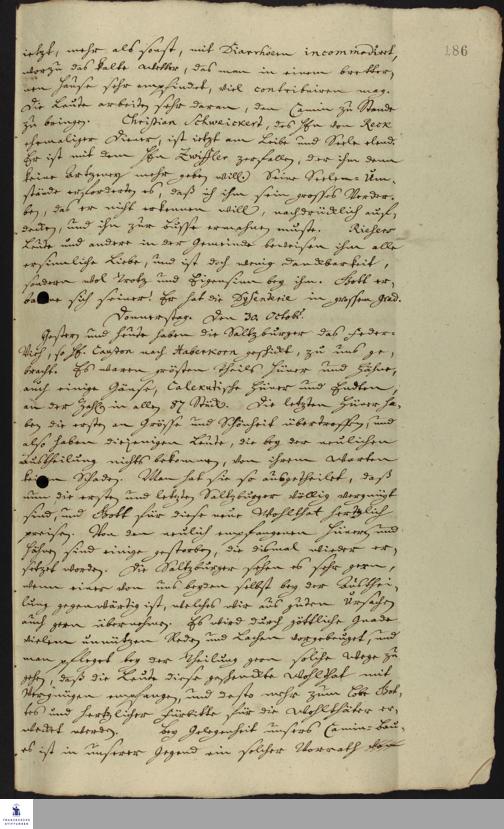 186
jetzt, mehr als sonst, mit Diarrhöen incommodiret,
worzu das kalte Wetter, das man in einem bretter-
nen Hause sehr empfindet, viel contribuiren mag.
Die Leute arbeiten sehr daran, den Camin zu Stande
zu bringen. Christian Schweickert, des Hn von Reck
ehemaliger Diener, ist jetzt am Leibe und Seele elend.
Er ist mit dem Hn Zwiffler zerfallen, der ihm denn
keine Artzeney mehr geben will. Seine Seelen-Um-
stände erforderten es, daß ich ihm sein grosses Verder-
ben, das er nicht erkennen will, nachdrücklich auf-
deckte, und ihn zur Busse ermahnen muste.
Leute und andere in der Gemeinde beweisen ihm alle
ersinnliche Liebe, und ist doch wenig Danckbarkeit,
sondern wol Trotz und Eigensinn bey ihm. Gott er-
barme sich seiner! Er hat die Dysenterie in grossem Grad.
Donnerstag. Den 30. Octobr.
Gestern und heute haben die Saltzburger das Feder-
Vieh, so H. Causton nach Abercorn geschickt, zu uns ge-
bracht. Es waren grösten Theils Hüner und Hähne,
auch einige Gänse, Calecutische Hüner und Endten,
an der Zahl in allen 57 Stück. Die letzten Hüner ha-
ben die ersten an Grösse und Schönheit übertroffen, und
also haben diejenigen Leute, die bey der neulichen
Austheilung nichts bekommen, von ihrem Warten
keinen Schaden. Man hat sie so ausgetheilet, daß
nun die ersten und letzten Saltzburger völlig vergnügt
sind, und Gott für diese neue Wohlthat hertzlich
preisen. Von den neulich empfangenen Hünern und
Hähnen sind einige gestorben, die dismal wieder er-
setzet worden. Die Saltzburger sehen es sehr gern,
wenn einer von uns beyden selbst bey der Austhei-
lung gegenwärtig ist, welches wir aus guten Ursachen
auch gern übernehmen. Es wird durch göttliche Gnade
vielem unnützen Reden und Lachen vorgebeuget, und
man pfleget bey der Theilung gern solche Wege zu
gehen, daß die Leute diese geschenckte Wohlthat mit
Vergnügen empfangen, und desto mehr zum Lobe Got-
tes und hertzlicher Fürbitte für die Wohlthäter er-
wecket werden. Bey Gelegenheit unsers Camin-Bau-
es ist in unserer Gegend ein solcher Vorrath
FRANCKESCHE
STIFTUNGEN